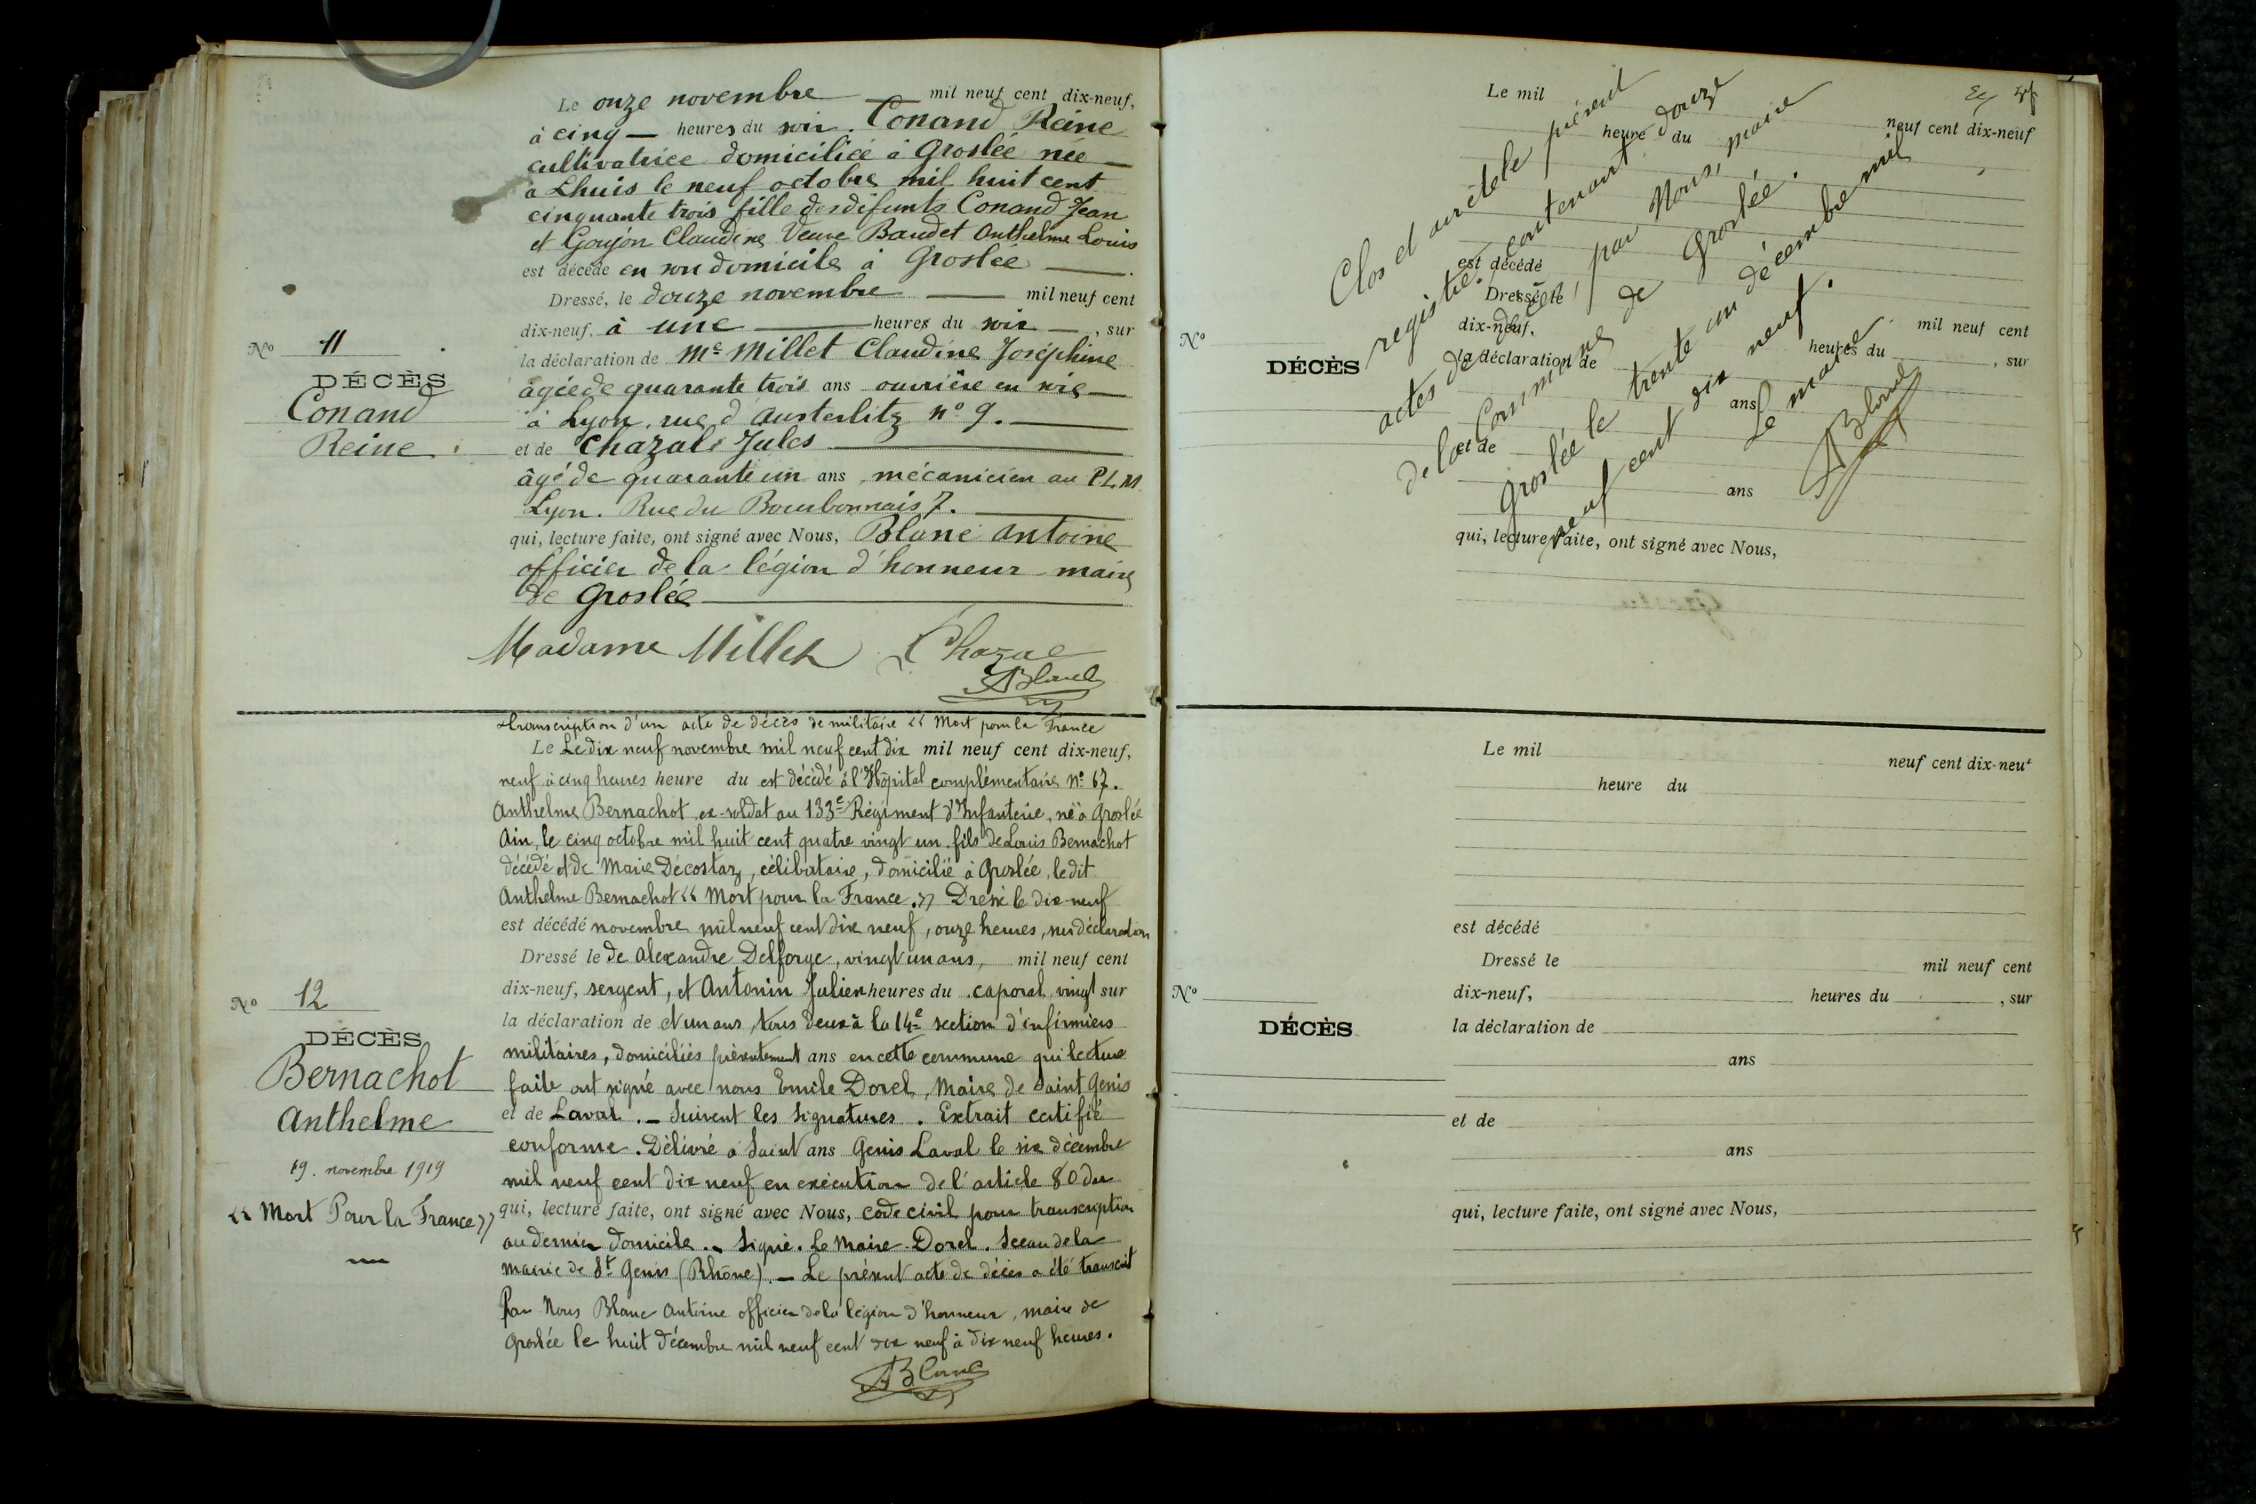 Le onze novembre mil neuf cent dix-neuf,
à cinq heures du soir. Conand Reine
cultivatrice domiciliée à Groslée née
à Lhuis le neuf octobre mil huit cent
cinquante trois fille des défunts Conand Jean
et Goujon Claudine Veuve Baudet Anthelme Louis
est décédé en son domicile à Groslée
Dressé, le douze novembre mil neuf cent
dix-neuf, à une heures du soir, sur
No 11
DÉCÈS
Conand
Reine
la déclaration de Me Millet Claudine Joséphine
âgée de quarante trois ans ouvrière en soie
à Lyon, rue d'Austerlitz no 9.
et de Chazal Jules
âgé de quarante un ans, mécanicien au P.L.M
Lyon. Rue du Bourbonnais 7.
qui, lecture faite, ont signé avec Nous, Blanc Antoine
officier de la légion d'honneur maire
de Groslée
Madame Millet Chazal
ABlanc
transcription d'un acte de décès de militaire "Mort pour la France
Le Le dix neuf novembre mil neuf cent dix mil neuf cent dix-neuf,
neuf à cinq heures heure du est décédé à l'Hôpital complémentaire No 67.
Anthelme Bernachot, ex-soldat au 133e Régiment d'Infanterie, né à Groslée
Ain, le cinq octobre mil huit cent quatre vingt un fils de Louis Bernachot
décédé et de Marie Décostaz, célibataire, domicilié à Groslée, le dit
Anthelme Bernachot "Mort pour la France." Dressé le dix-neuf
est décédé novembre mil neuf cent dix neuf, onze heures, sur déclaration
Dressé le de Alexandre Delforge, vingt un ans, mil neuf cent
dix-neuf, sergent, et Antonin Julien heures du caporal, vingt sur
No 12
DÉCÈS
Bernachot
Anthelme
19. novembre 1919
"Mort Pour la France"
la déclaration de et un ans, tous deux à la 14e section d'infirmiers
militaires, domiciliés présentement ans en cette commune qui lecture
faite ont signé avec nous Emile Dorel, Maire de Saint Genis
et de Laval. - Suivent les signatures. Extrait certifié
conforme. Délivré à Saint ans Genis Laval le six décembre
mil neuf cent dix neuf en exécution de l'article 80 du
qui, lecture faite, ont signé avec Nous, code civil pour transcription
au dernier domicile. - Signé. Le Maire Dorel. Sceau de la
mairie de St Genis (Rhône). - Le présent acte de décès a été transcrit
Par Nous Blanc Antoine officier de la légion d'honneur, maire de
Groslée le huit décembre mil neuf cent dix neuf à dix neuf heures.
ABlanc
Le mil
neuf cent dix-neuf
heure du
est décédé
Dressé le mil neuf cent
dix-neuf, heures du , sur
No
DÉCÈS
la déclaration de
ans
et de
ans
qui, lecture faite, ont signé avec Nous,
Clos et arrêté le présent
registre, contenant douze
actes de décès, par Nous, maire
de la Commune de Groslée.
Groslée le trente un décembre mil
neuf cent dix neuf.
Le maire
ABlanc
Le mil
neuf cent dix-neuf
heure du
est décédé
Dressé le mil neuf cent
dix-neuf, heures du , sur
No
DÉCÈS
la déclaration de
ans
et de
ans
qui, lecture faite, ont signé avec Nous,